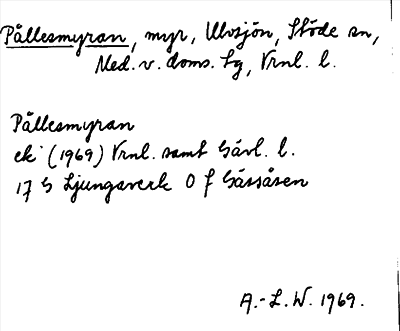 Pållesmyran, myr, Ulvsjön, Stöde sn,
Med. v. doms. tg, Vrnl. l.
Pållesmyran
ek (1969) Vrnl. samt Gävl. l.
17 G Ljungaverk 0 f Gässåsen
A.-L. W. 1969.